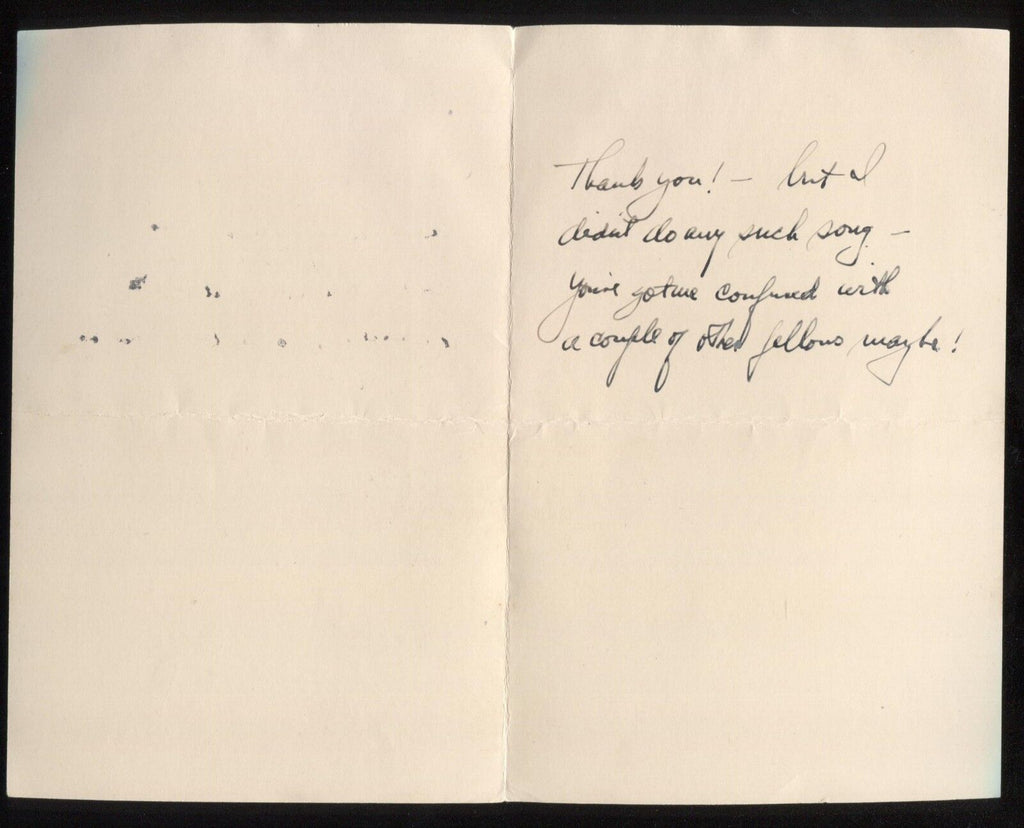 Thank you! — but I
didn't do any such song —
You've got me confused with
a couple of other fellows maybe!